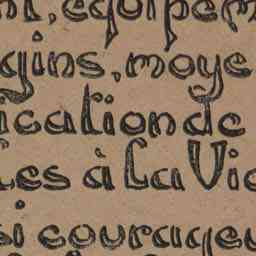 nt, équipem
gins, moye
ication de
les à la Vic
si courageu